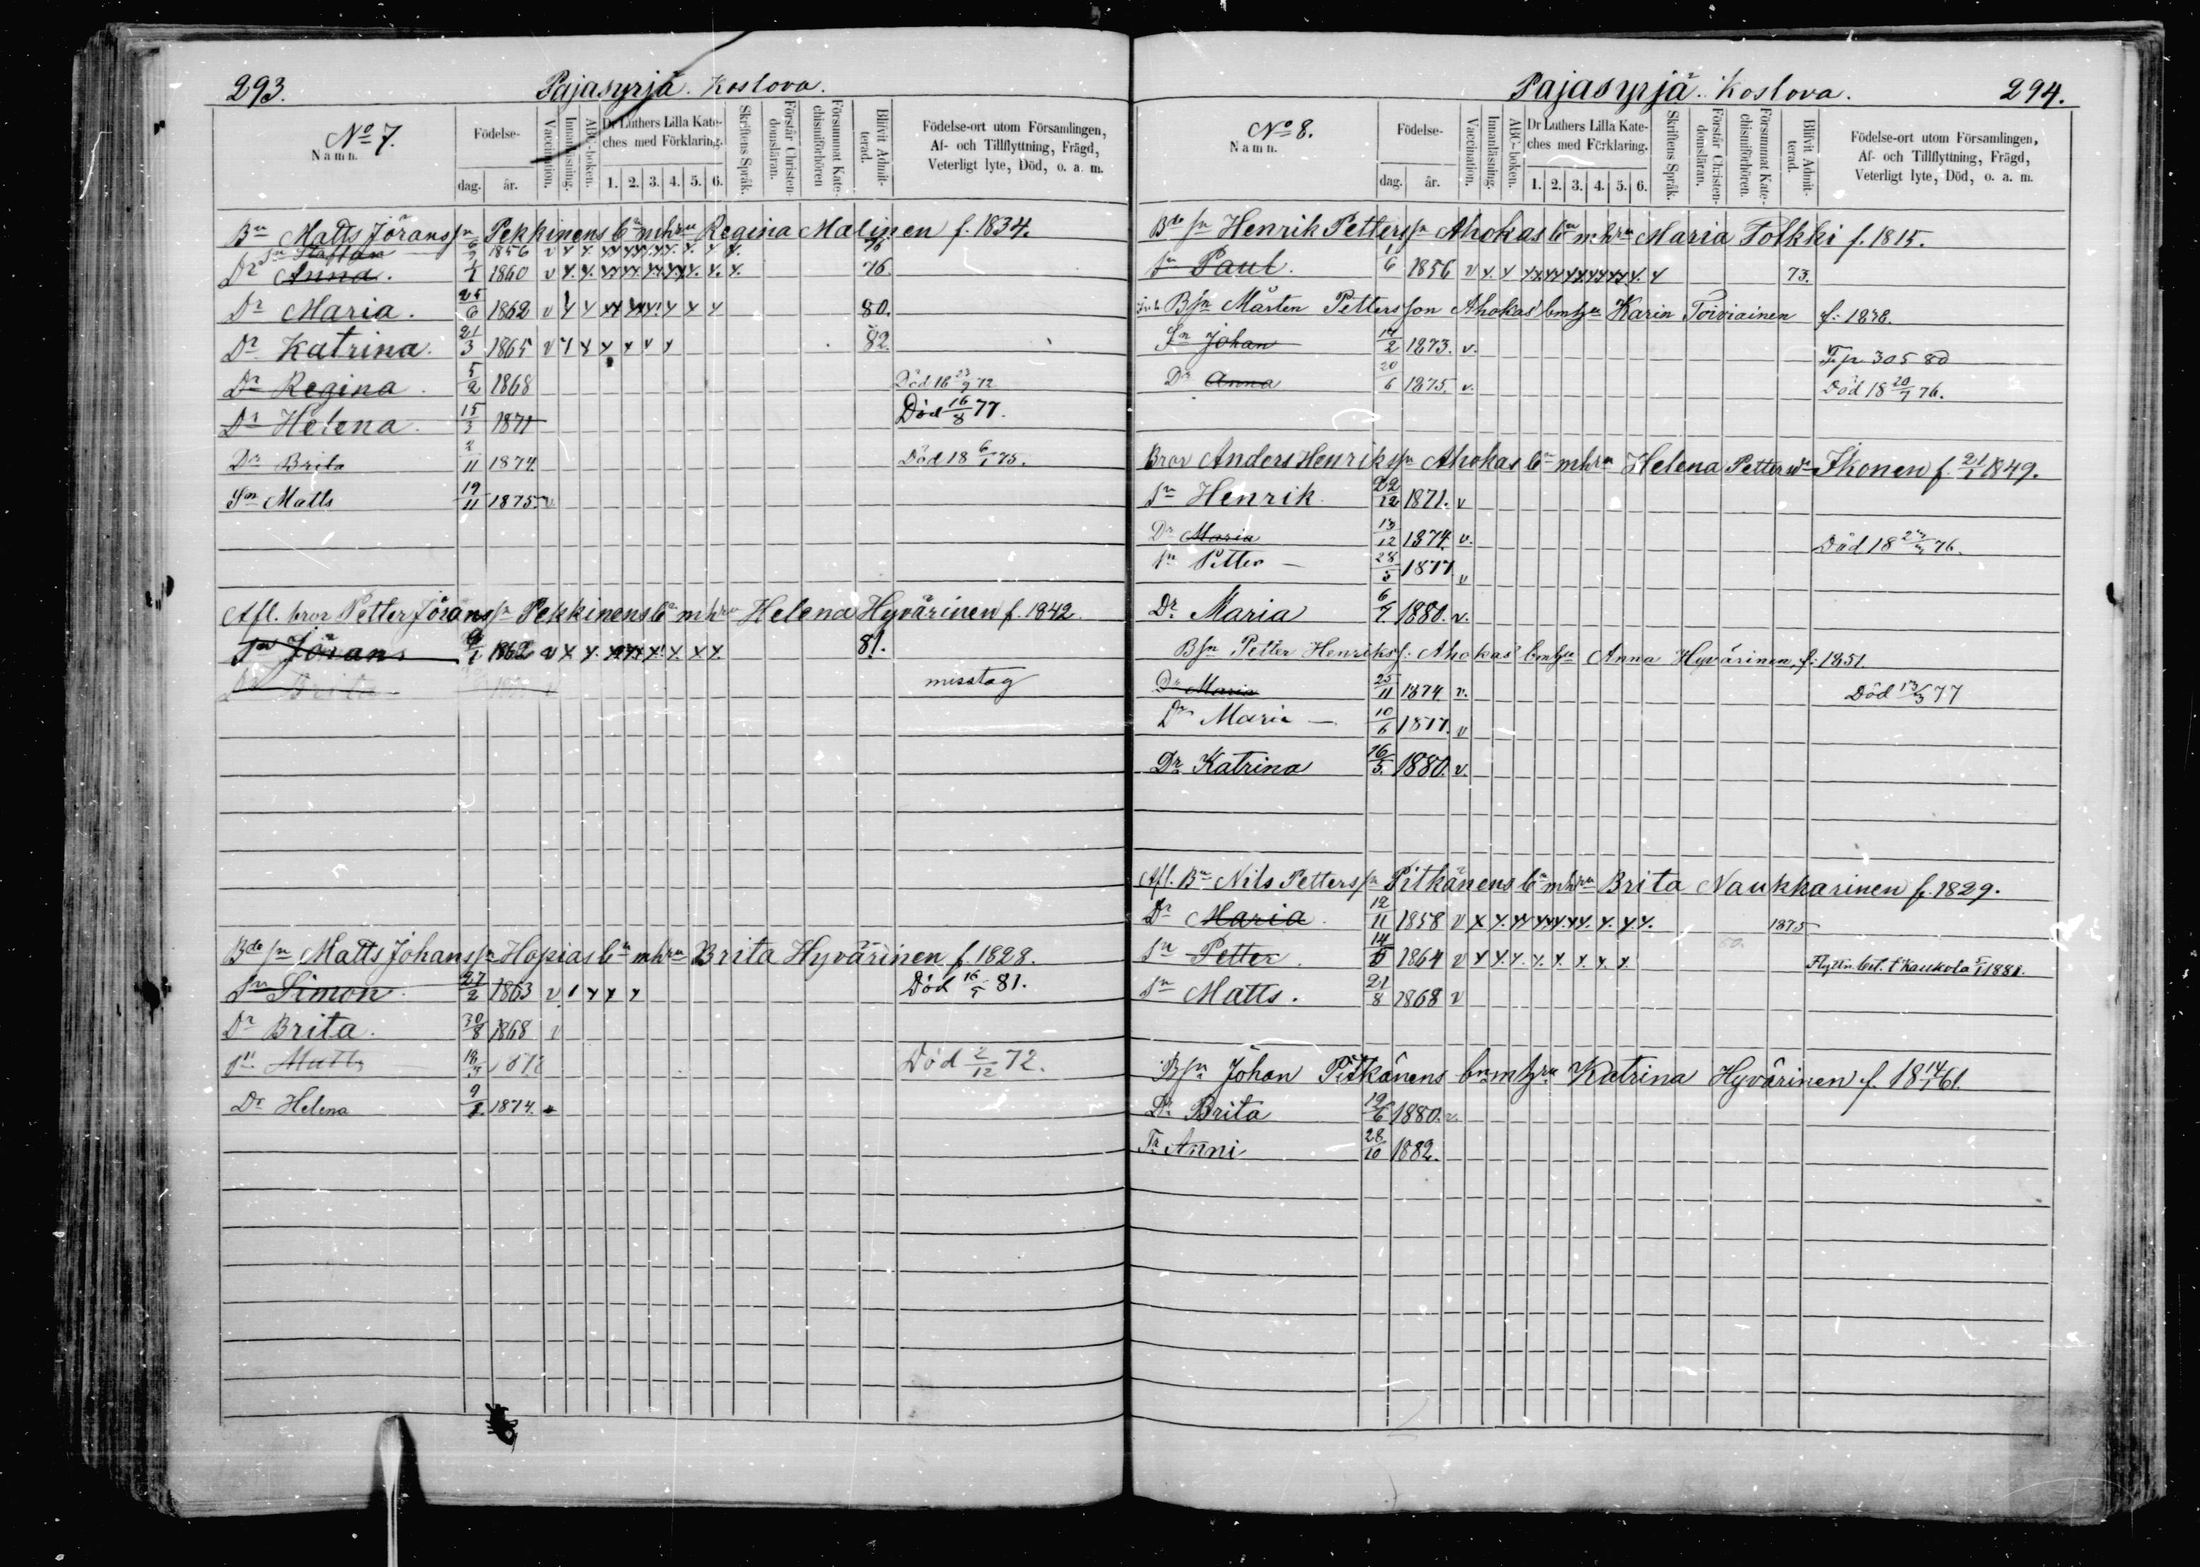 293. Pajasyrjä. Koslova.
No 7.
Namn.
Födelse-
dag. år.
Vaccination.
Innanläsning.
ABC-boken.
Dr Luthers Lilla Kate-
ches med Förklaring.
1. 2. 3. 4. 5. 6.
Skriftens Språk.
Förstår Christen-
domsläran.
Försummat Kate-
chismiförhören
Blifvit Admit-
terad.
Födelse-ort utom Församlingen,
Af- och Tillflyttning, Frägd,
Veterligt lyte, Död, o. a. m.
Bn Matts Jöranssn Pekkinens bn mhru Regina Malinen f. 1834.
Sn Staffan 1856 v x x. 76
Dr Anna. 1860 v x. x. 76.
Dr Maria. 25/6 1862 v x x 80.
Dr Katrina. 21/3 1865 v x x x x x x 82.
Dr Regina. 5/2 1868 Död 18 72
Dr Helena. 15/3 1871 Död 16/8 77.
Dr Brita 2/11 1874 Död 18 6/1 75.
Sn Matts 19/11 1875. v.
Afl. bror Petter Jöranssn Pekkinens bn mhru Helena Hyvärinen f. 1842.
Sn Jörans 1862 v x x. 81.
Dr Brita misstag
Bde sn Matts Johanssn Hopias bn mhru Brita Hyvärinen f. 1828.
Sn Simon. 27/2 1863 v x x x Död 81.
Dr Brita. 30/8 1868 v
Sn Matts Död 2/12 72.
Dr Helena 1874.
Pajasyrjä. Koslova. 294.
No 8.
Namn.
Födelse-
dag. år.
Vaccination.
Innanläsning.
ABC-boken.
Dr Luthers Lilla Kate-
ches med Förklaring.
1. 2. 3. 4. 5. 6.
Skriftens Språk.
Förstår Christen-
domsläran.
Försummat Kate-
chismiförhören.
Blifvit Admit-
terad.
Födelse-ort utom Församlingen,
Af- och Tillflyttning, Frägd,
Veterligt lyte, Död, o. a. m.
Bde sn Henrik Petterssn Ahokas bn mhru Maria Tolkki f. 1815.
Sn Paul. 1/6 1856 v x. x 73.
Bsn Mårten Pettersson Ahokas bmhu Karin Toiviainen f. 18
Sn Johan 1873. v. 305 80
Dr Anna 20/6 1875. v. Död 18 20/7 76.
Bror Anders Henrikssn Ahokas bn mhru Helena Pettersdr Ikonen f. 21/1 1849.
Sn Henrik. 22/12 1871. v
Dr Maria 13/12 1874 v. Död 18 76.
Sn Petter – 28/5 1877 v
Dr Maria 6/7 1880. v.
Bsn Petter Henrikss: Ahokas bmhu Anna Hyvärinen, f: 1851.
Dr Maria 25/11 1874 v. Död 13/3 77
Dr Maria – 10/6 1877. v
Dr Katrina 16/5. 1880. v.
Afl. Bn Nils Petterssn Pitkänens bn mhru Brita Naukkarinen f. 1829.
Dr Maria. 12/11 1858 v x x. 1875
Sn Petter. 14/5 1864 v x x. x. x. x. x. x. Flyttn. bet. t. Kaukola 1881.
Sn Matts. 21/8 1868 v
Bsn Johan Pitkänens bnmhru Katrina Hyvärinen f. 18 14/1 61.
Dr Brita 19/6 1880. v.
Tr Anni 28/10 1882.